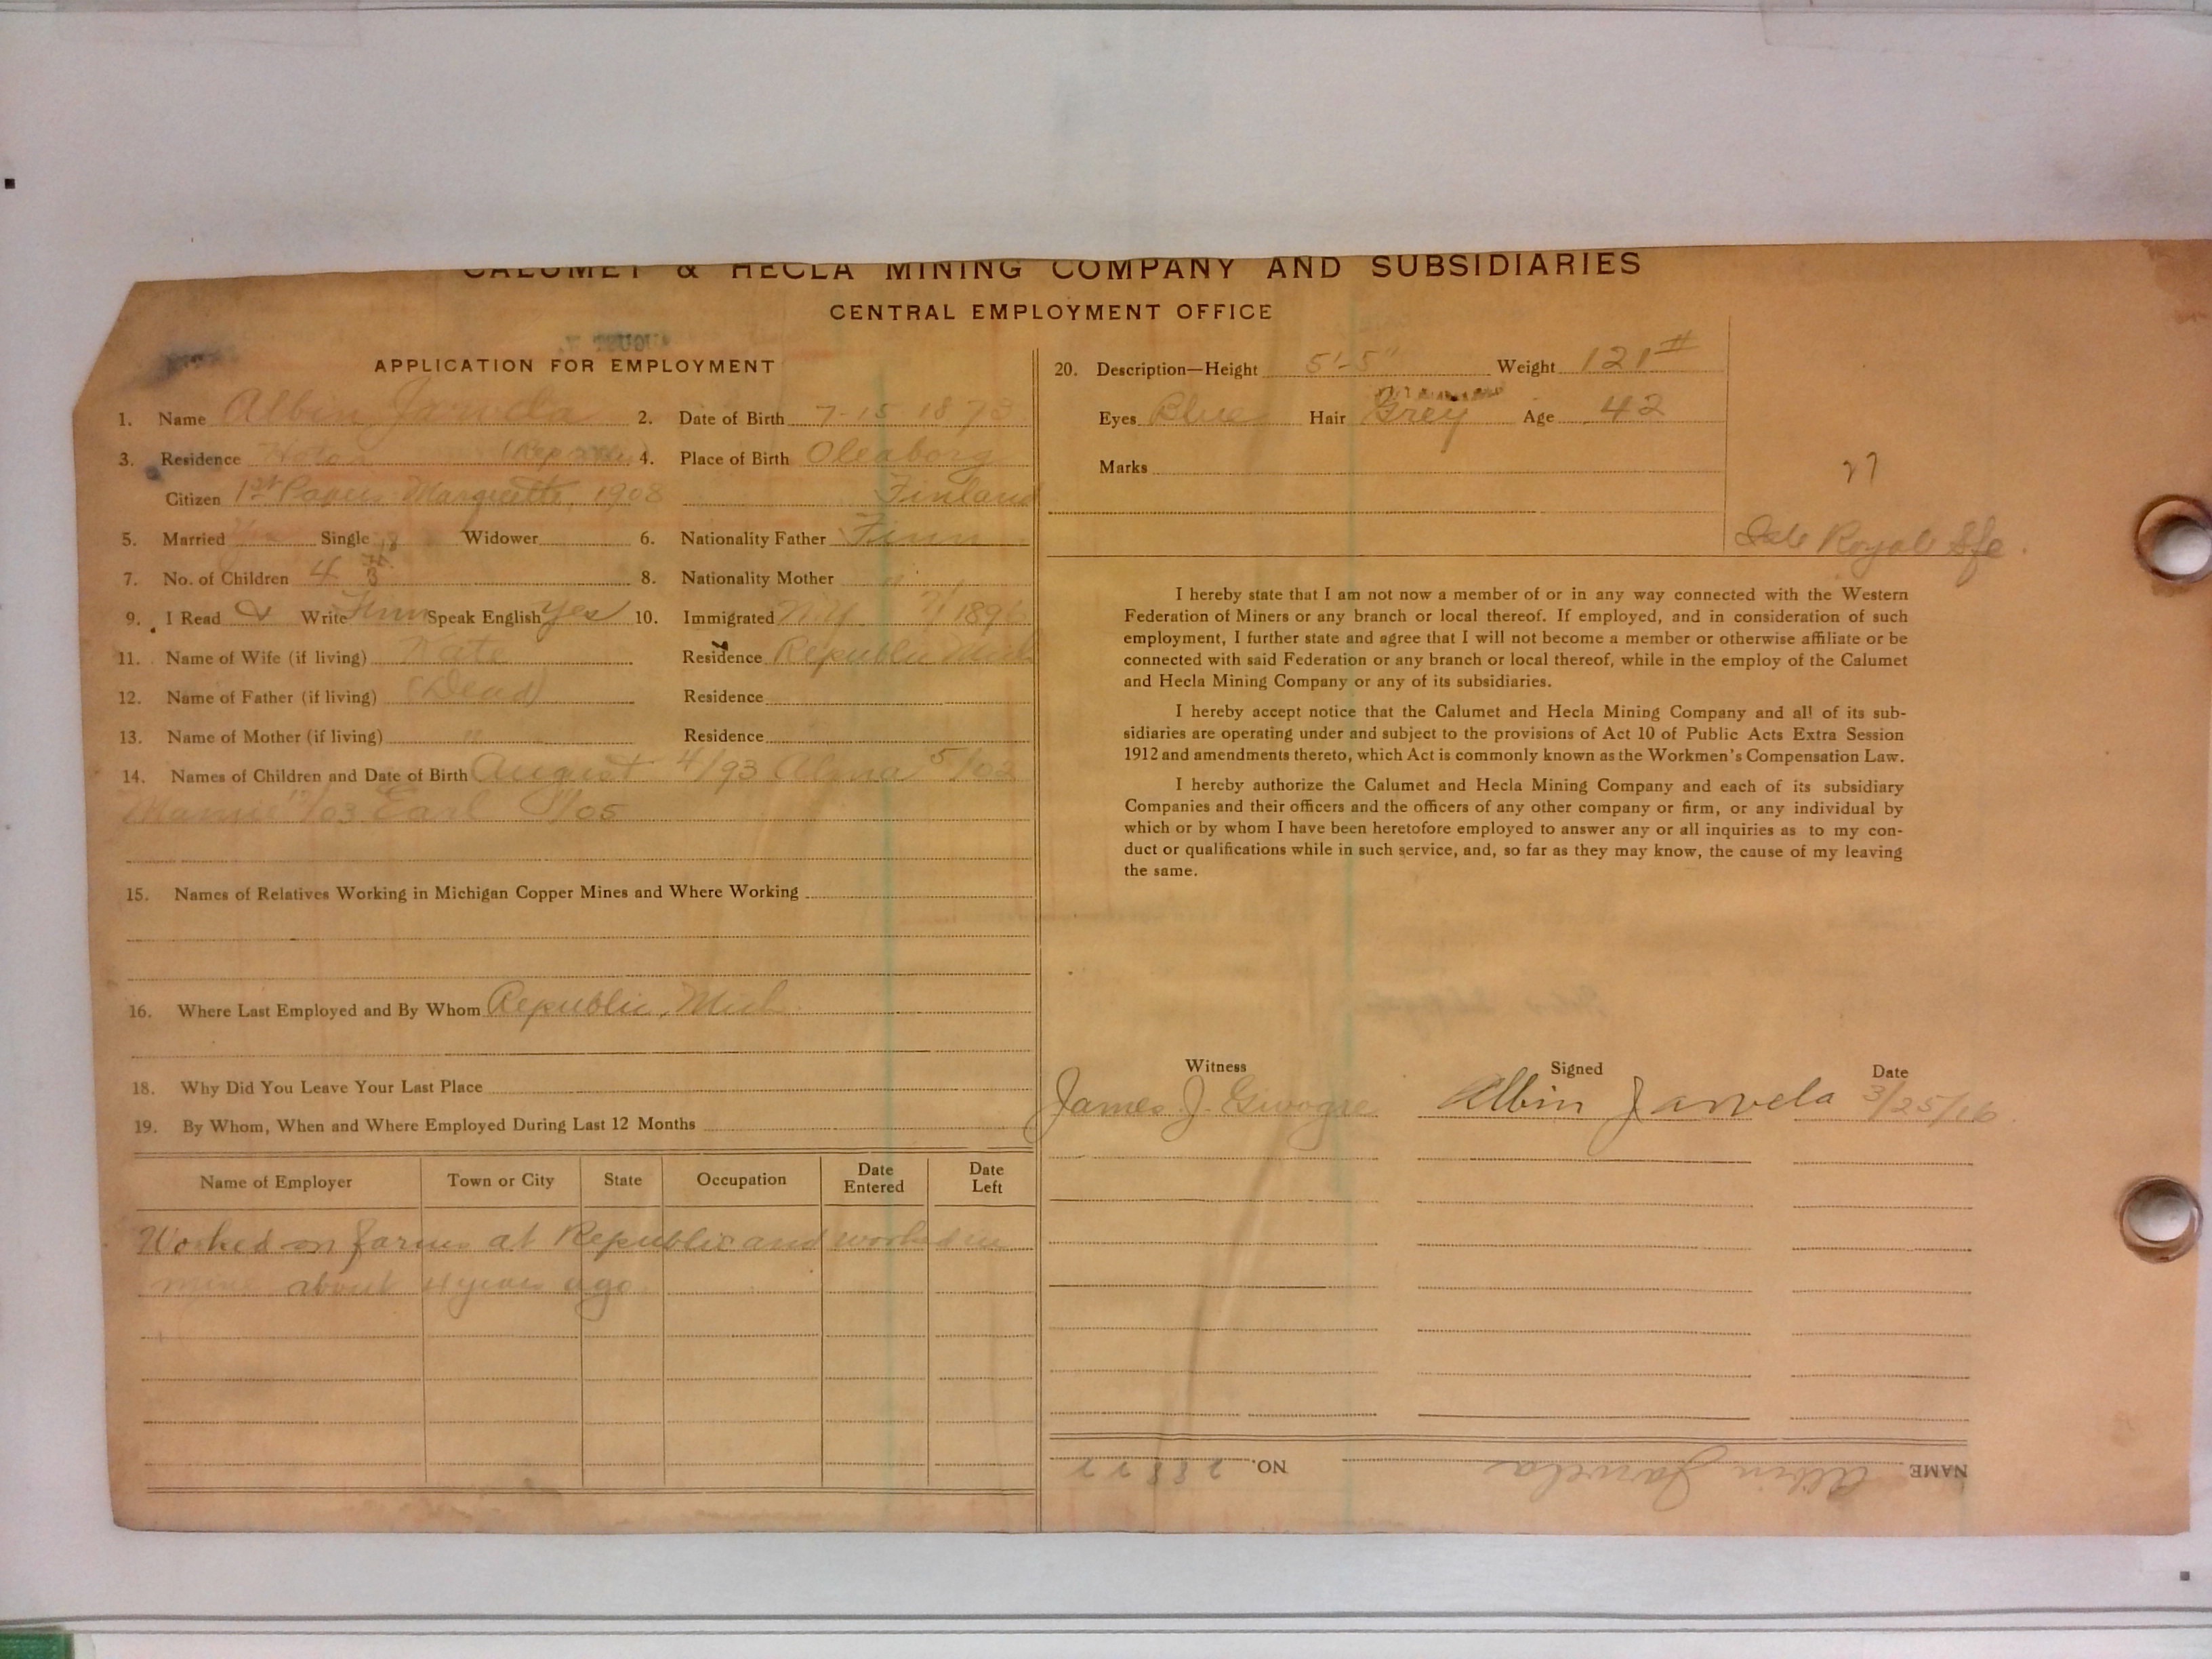 CALUMET & HECLA MINING COMPANY AND SUBSIDIARIES
CENTRAL EMPLOYMENT OFFICE
APPLICATION FOR EMPLOYMENT
1. Name Albin Jarvela 2. Date of Birth 7-15 1873
3. Residence 4. Place of Birth Oleaborg
Citizen 1st Papers Marquette, 1908 Finland
5. Married Single Widower 6. Nationality Father Finn
7. No. of Children 4 8. Nationality Mother "
9. I Read & Write Finn Speak English Yes 10. Immigrated N.Y. 1896
11. Name of Wife (if living) Kate Residence Republic Mich
12. Name of Father (if living) (Dead) Residence
13. Name of Mother (if living) " Residence
14. Names of Children and Date of Birth August 4/93 Alma 5/02
Mamie 12/03 Earl 8/05
15. Names of Relatives Working in Michigan Copper Mines and Where Working
16. Where Last Employed and By Whom Republic, Mich
18. Why Did You Leave Your Last Place
19. By Whom, When and Where Employed During Last 12 Months
Name of Employer Town or City State Occupation Date Entered Date Left
Worked on farm at Republic and worked in
mine about 4 years ago
20. Description—Height 5'-5" Weight 121#
Eyes Blue Hair Grey Age 42
Marks
27
Isle Royale
I hereby state that I am not now a member of or in any way connected with the Western
Federation of Miners or any branch or local thereof. If employed, and in consideration of such
employment, I further state and agree that I will not become a member or otherwise affiliate or be
connected with said Federation or any branch or local thereof, while in the employ of the Calumet
and Hecla Mining Company or any of its subsidiaries.
I hereby accept notice that the Calumet and Hecla Mining Company and all of its sub-
sidiaries are operating under and subject to the provisions of Act 10 of Public Acts Extra Session
1912 and amendments thereto, which Act is commonly known as the Workmen's Compensation Law.
I hereby authorize the Calumet and Hecla Mining Company and each of its subsidiary
Companies and their officers and the officers of any other company or firm, or any individual by
which or by whom I have been heretofore employed to answer any or all inquiries as to my con-
duct or qualifications while in such service, and, so far as they may know, the cause of my leaving
the same.
Witness Signed Date
James J. Albin Jarvela 3/25/16
NAME Albin Jarvela NO. 23877